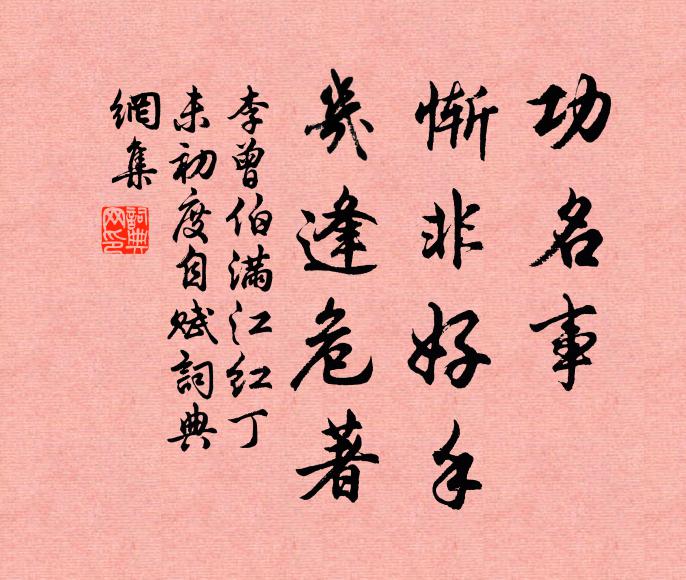 功名事
惭非好手
几逢危著
李曾伯满江红丁
未初度自赋词典
網集
詞典網印